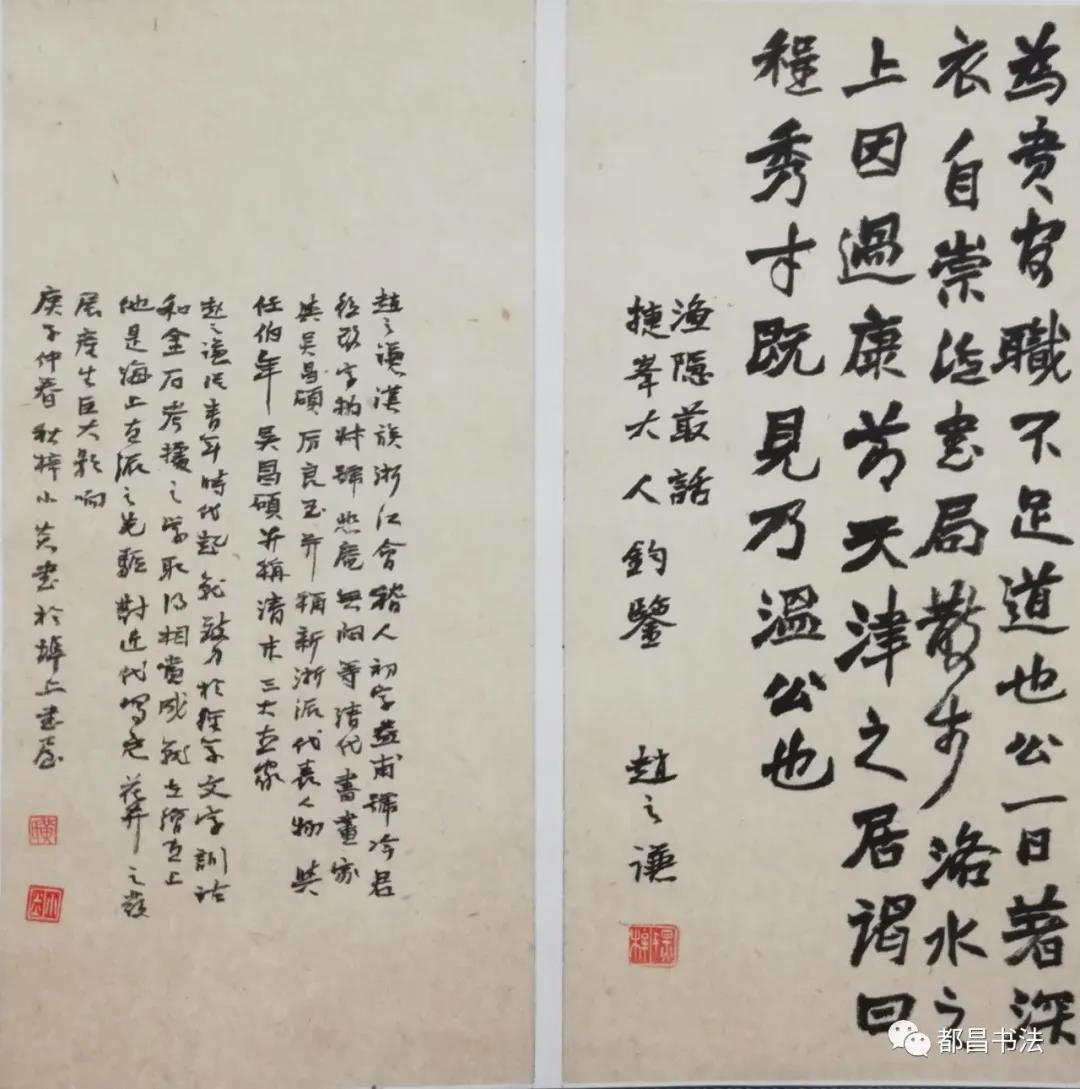 為貴官職不足道也公一日著深
衣自崇政書局散步洛水之
上因過康節天津之居謁曰
程秀才既見乃溫公也
漁隱叢話
捷峯大人鈞鑒 趙之謙
趙之謙漢族浙江會稽人初字益甫號冷君
後改字撝叔號悲庵無悶等清代書畫家
與吳昌碩厉良玉并稱新浙派代表人物與
任伯年吳昌碩并稱清末三大畫家
趙之謙從青年時代起就致力於經學文字訓詁
和金石考據之學取得相當成就在繪畫上
他是海上畫派之先驅對近代寫意花卉之發
展產生巨大影响
庚子仲春秋梓小黃書於埠上書屋
都昌书法